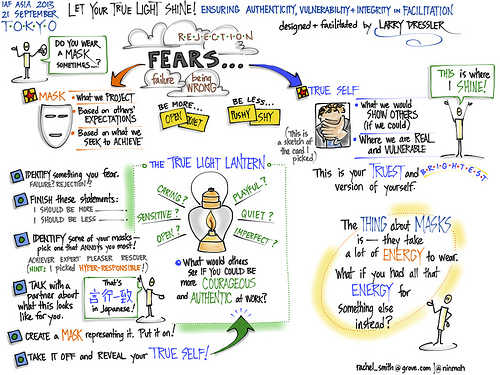 IAF ASIA 2013
21 SEPTEMBER
T·O·K·Y·O
LET YOUR TRUE LIGHT SHINE! ENSURING AUTHENTICITY, VULNERABILITY + INTEGRITY in FACILITATION
designed + facilitated by LARRY DRESSLER
DO YOU WEAR
a MASK
SOMETIMES...?
REJECTION
FEARS...
failure
being
WRONG
THIS is where
I SHINE!
MASK
• What we PROJECT
• Based on others'
EXPECTATIONS
• Based on what we
SEEK to ACHIEVE
BE MORE...
OPEN
QUIET
BE LESS...
PUSHY
SHY
TRUE SELF
(This is
a sketch of
the card I
picked)
• What we would
SHOW OTHERS
(if we could)
• Where we are REAL
and VULNERABLE
This is your TRUEST and B·R·I·G·H·T·E·S·T
version of yourself.
IDENTIFY something you fear.
FAILURE? REJECTION?
FINISH these statements:
I SHOULD BE MORE
I SHOULD BE LESS
IDENTIFY some of your masks –
pick one that ANNOYS you most!
ACHIEVER EXPERT PLEASER RESCUER
(HINT: I picked HYPER-RESPONSIBLE!)
TALK with a
partner about
what this looks
like for you.
That's
言行一致
in Japanese!
CREATE a MASK representing it. Put it on!
TAKE IT OFF and REVEAL your TRUE SELF!
THE TRUE LIGHT LANTERN
CARING?
PLAYFUL?
SENSITIVE?
QUIET?
OPEN?
IMPERFECT?
What would others
see IF YOU COULD BE
more COURAGEOUS
and AUTHENTIC at WORK?
The THING about MASKS
is — they take
a lot of ENERGY to wear.
What if you had all that
ENERGY for
something else
instead?
rachel_smith@grove.com | @ninmah